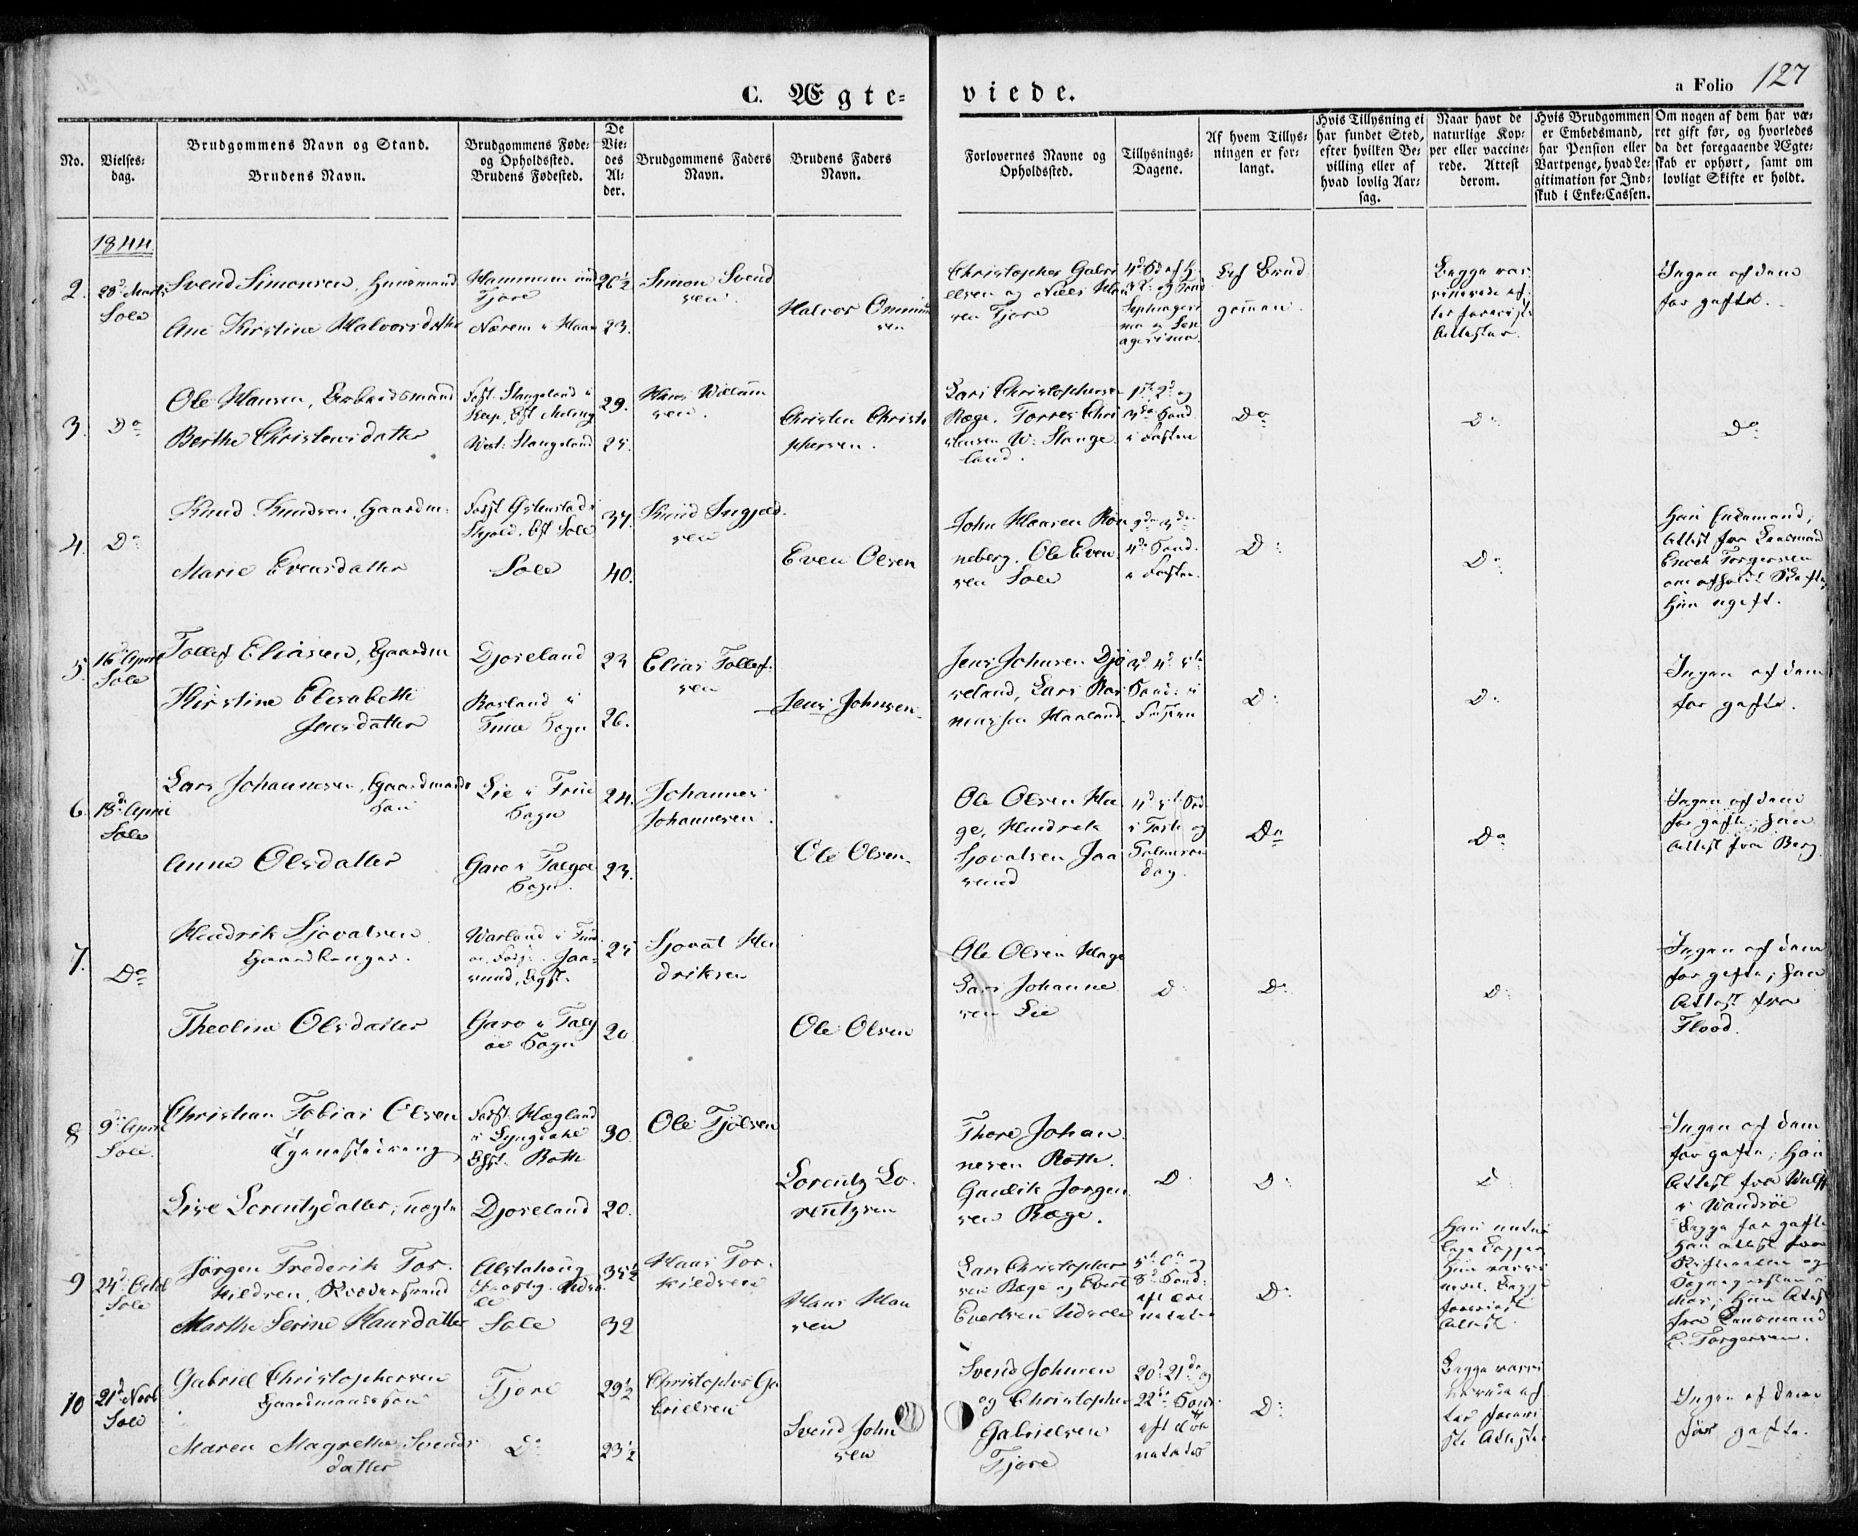 C. Ægte-
viede.
a Folio 127
No.
Vielses-
dag.
Brudgommens Navn og Stand.
Brudens Navn.
Brudgommens Føde-
og Opholdssted.
Brudens Fødested.
De
Vie-
des
Al-
der.
Brudgommens Faders
Navn.
Brudens Faders
Navn.
Forlovernes Navne og
Opholdssted.
Tillysnings-
Dagene.
Af hvem Tillys-
ningen er for-
langt.
Hvis Tillysning ei
har fundet Sted,
efter hvilken Be-
villing eller af
hvad lovlig Aar-
sag.
Naar havt de
naturlige Kop-
per eller vaccine-
rede. Attest
derom.
Hvis Brudgommen
er Embedsmand,
har Pension eller
Vartpenge, hvad Le-
gitimation for Ind-
skud i Enke-Cassen.
Om nogen af dem har væ-
ret gift før, og hvorledes
da det foregaaende Ægte-
skab er ophørt, samt om
lovligt Skifte er holdt.
1844
2.
Sole
Svend Simonsen, Huusmand
Ane Kirstine Halvorsdatter
Tjore
Nærem i Haae
26½
23.
Simon Svend
sen.
Halvor Ommun
sen
Christopher Gabri
elsen og Niels Han
sen Tjore
Septuagesi
ma og Sex
agesima
Af Brud
gomen.
Begge vac-
cinerede ef-
ter foreviste
Attester.
Ingen af dem
før gifte.
3.
Do
Ole Hansen,
Berthe Christensdatter
Født. Stangeland i
Vest. Stangeland
29.
25.
Hans Willum
sen.
Christen Christo
phersen.
Lars Christophersen
Ræge. Torres Chri
stensen W. Stange
land.
1ste 2d og
3die Sønd.
i Fasten
Do
Do
Do
4.
Do
Knud Knudsen, Gaardm.
Marie Evensdatter
Skjold. Sole
Sole
37.
40.
Knud Ingjeld
sen
Even Olsen
John Hansen Røn
neberg. Ole Even
sen Sole
2den 3die
4de Sønd.
i Fasten
Do
Do
Han Enkemand,
Attest fra Lensmand
Enoch Torgersen
om afholdt Skifte,
Hun ugift.
5.
16de April
Sole
Tollef Eliasen, Gaardm
Kirstine Elisabeth
Jensdatter
Djoreland
Rosland i
Sogn
23
26.
Elias Tollef
sen
Jens Johnsen.
Jens Johnsen Djo
reland, Lars Ras
mussen Haaland.
3d 4d 5te
Sønd: i
Fasten
Do
Do
Ingen af dem
før gifte.
6.
18de April
Sole
Lars Johannesen, Gaardmands
søn
Anna Olsdatter
Lie i
Sogn
Garo i Talgøe
Sogn.
24.
23.
Johannes
Johannesen.
Ole Olsen.
Ole Olsen Ha
ge, Hendrik
Sjovatsen Jaa
sund
4d 5te Sød
i Faste og
Palmesøn
dag.
Do
Do
Ingen af dem
før gifte; Han
Attest fra Berg.
7.
Do
Hendrik Sjovatsen
Gaardbruger.
Theoline Olsdatter
Warland i
Jaa-
sund,
Garo i Talg
øe Sogn
25
20
Sjovat Hen
driksen
Ole Olsen
Ole Olsen Hage
Lars Johanne
sen Lie
Do
Do
Do
Ingen af dem
før gifte; Han
Attest fra
Flood.
8
9de April
Sole.
Christian Tobias Olsen
Lise Lorentzdatter, uægte
Fødst. Hægland
i Lyngdahl
Djoreland
30.
20.
Ole Tjølsen
Lorentz Lo-
rentzsen
Thore Johan
nesen Roth.
Gaudik Jorgen
sen Ræge.
Do
Do
Do
Ingen af dem
før gifte; Han
Attest fra Wulff
i Wandsøe
9
24d Octob
Sole
Jørgen Frederik Tor-
kildsen,
Marthe Serine Hansdatter
Sole
35½
32
Hans Tor-
kildsen
Hans Han
sen
Lars Christopher
sen Ræge og Evert
Evertsen Udsole
5te 6te og
8de Sønd:
eft
Do
Han natur
lige Kopper
Hun vacci
neret. Begge
foreviste
Attest.
Begge før gifte
Han attest fra
Skifteretten og
Sognepresten i
Mos; Hun Attest
fra Lensmand
E. Torgersen.
10
21d Novb
Sole
Gabriel Christophersen
Gaardmandssøn
Maren Magrethe Svends
datter
Tjore
Do
29½
23½
Christopher Ga
brielsen
Svend John
sen
Svend Johnsen
og Christopher
Gabrielsen
Tjore
20d 21de og
22de Sønd
eft
Do
Begge vacci
nerede ef
ter forevi
ste Attester
Ingen af dem
før gifte.